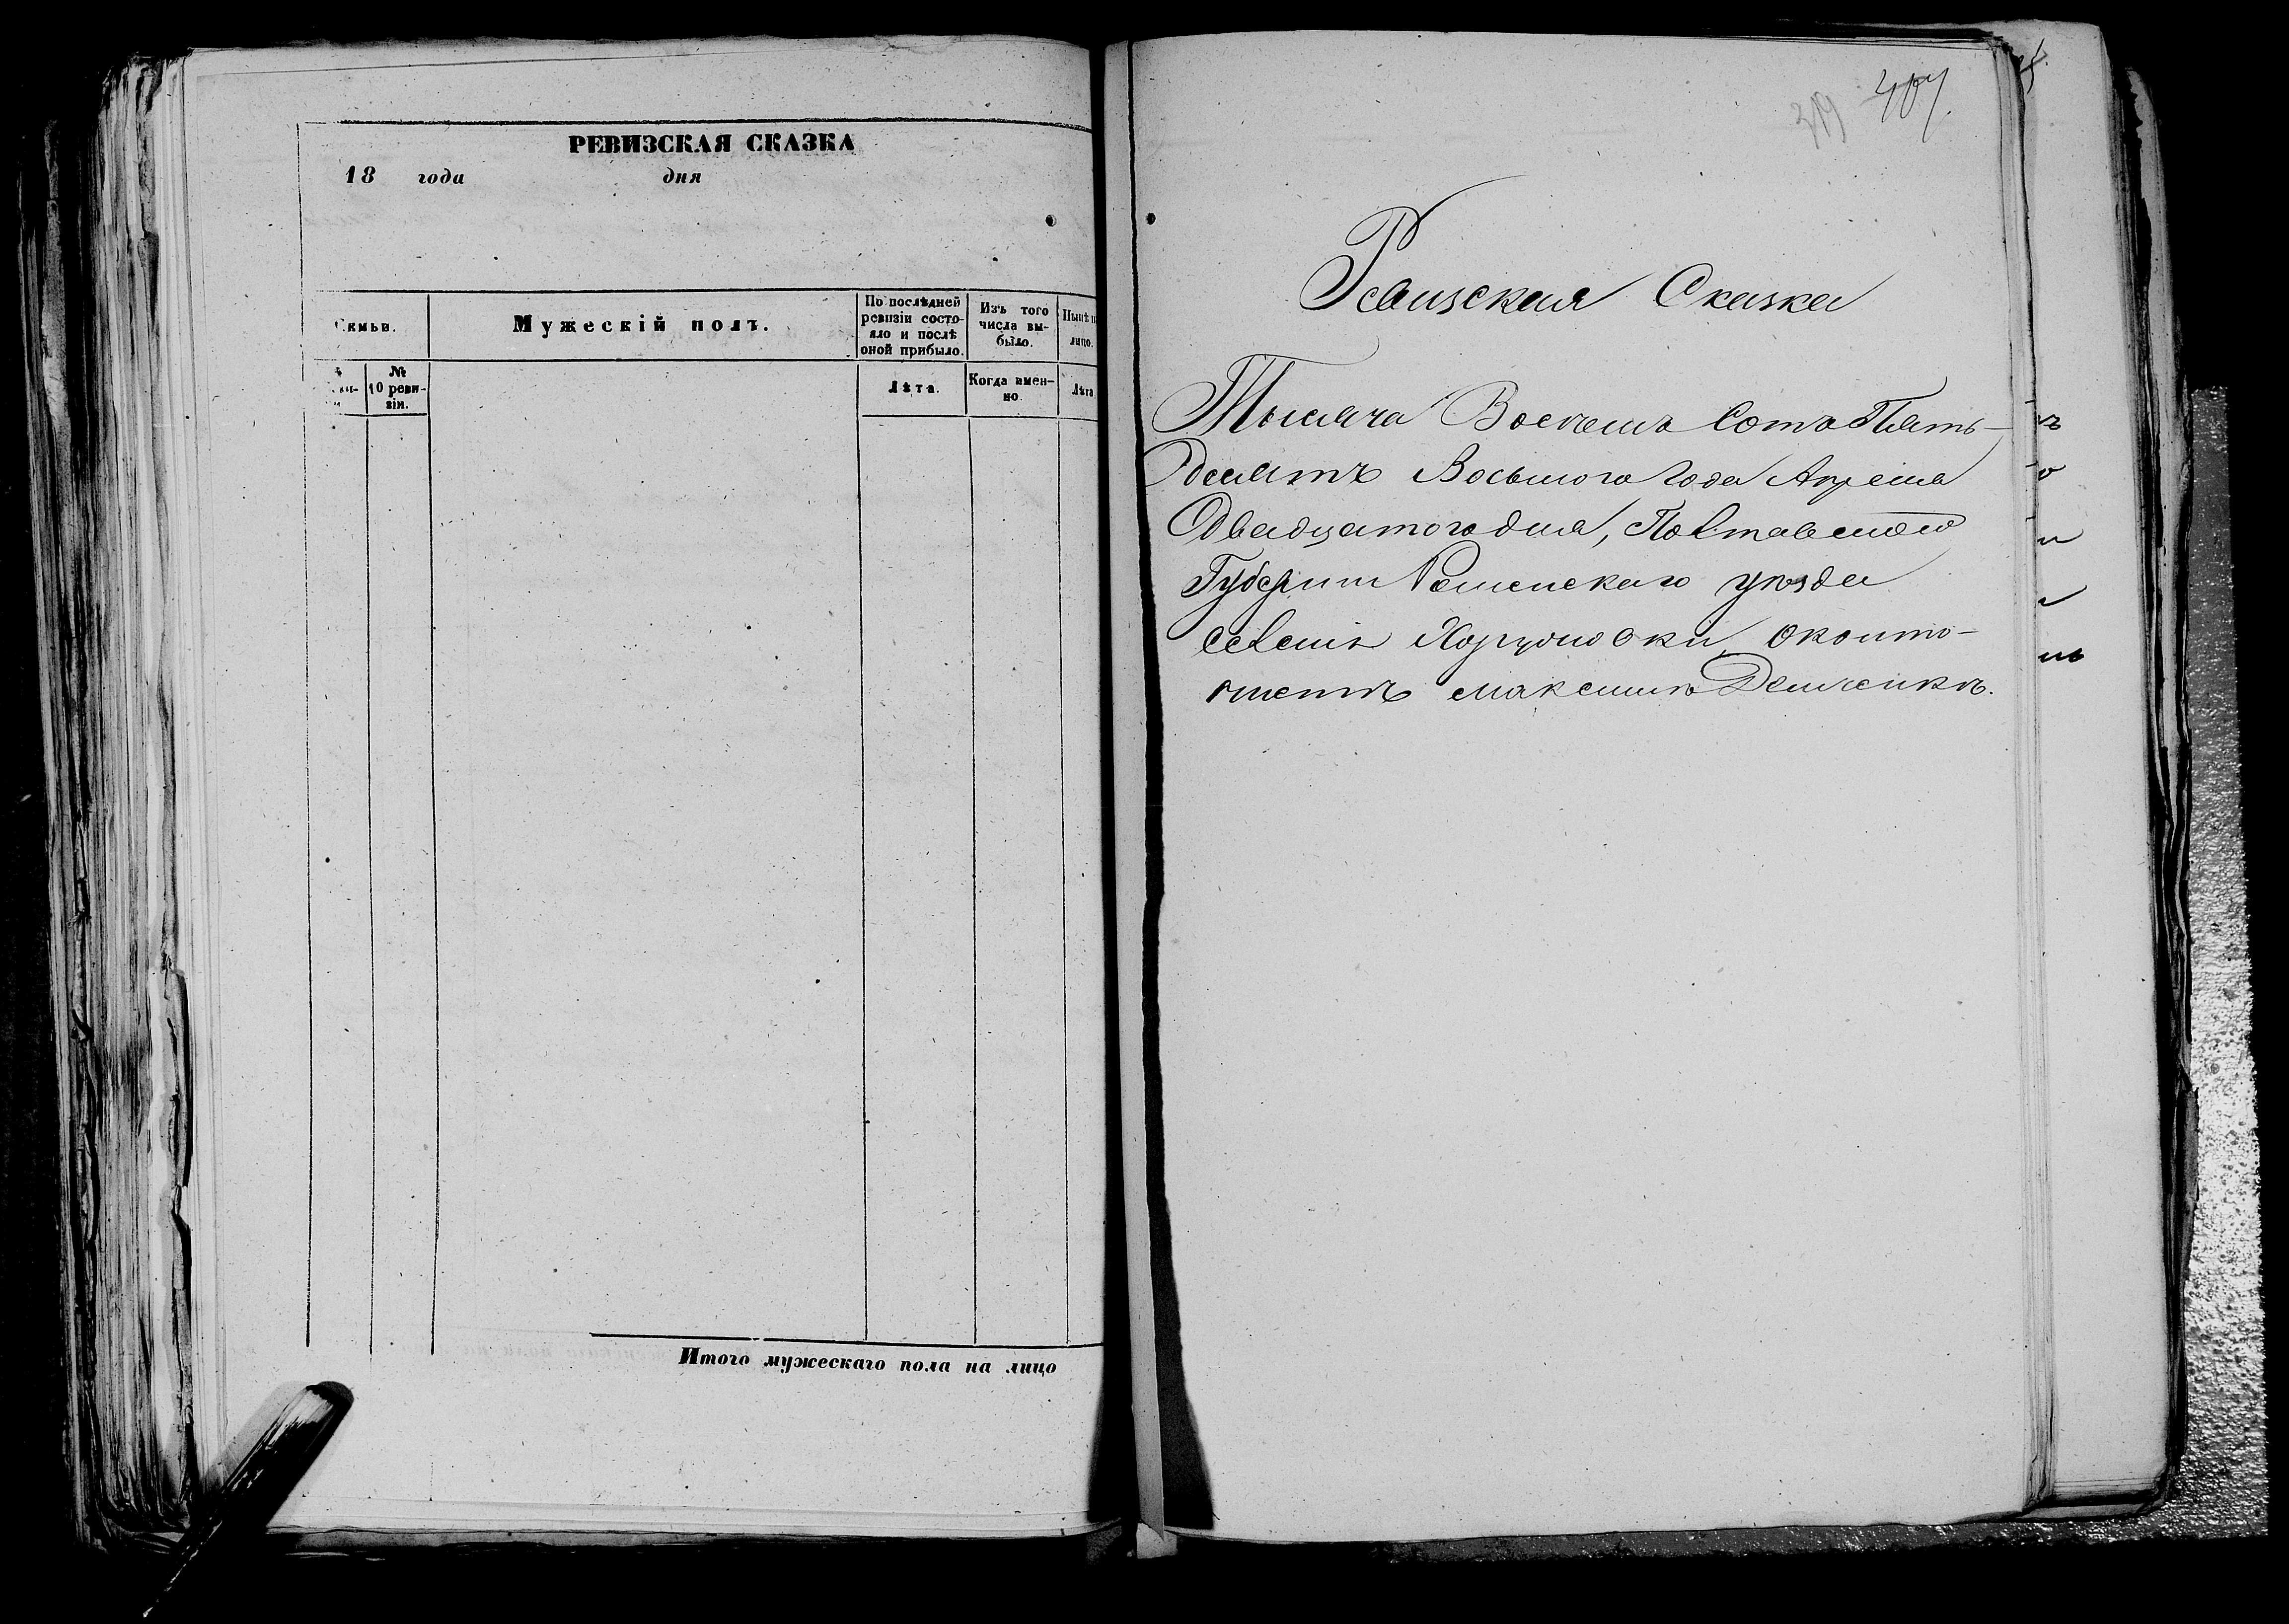 РЕВИЗСКАЯ СКАЗКА
18 года дня
Семьи.
Мужескій полъ.
По послѣдней ревизіи состо-
яло и послѣ
оной прибыло.
Изъ того
числа вы-
было.
лицо.
№
10 реви-
зіи.
Лѣта.
Когда имен-
но.
Лѣта
Итого мужескаго пола на лицо
407
319
Ревизская Сказка
Тысяча Восемь Сотъ Пять-
десятъ Восьмого Года Апреля
Двадцатого дня, Полтавской
Губерніи Роменского уѣзда
Селенія Хоружовки, о
Максима Демченка.